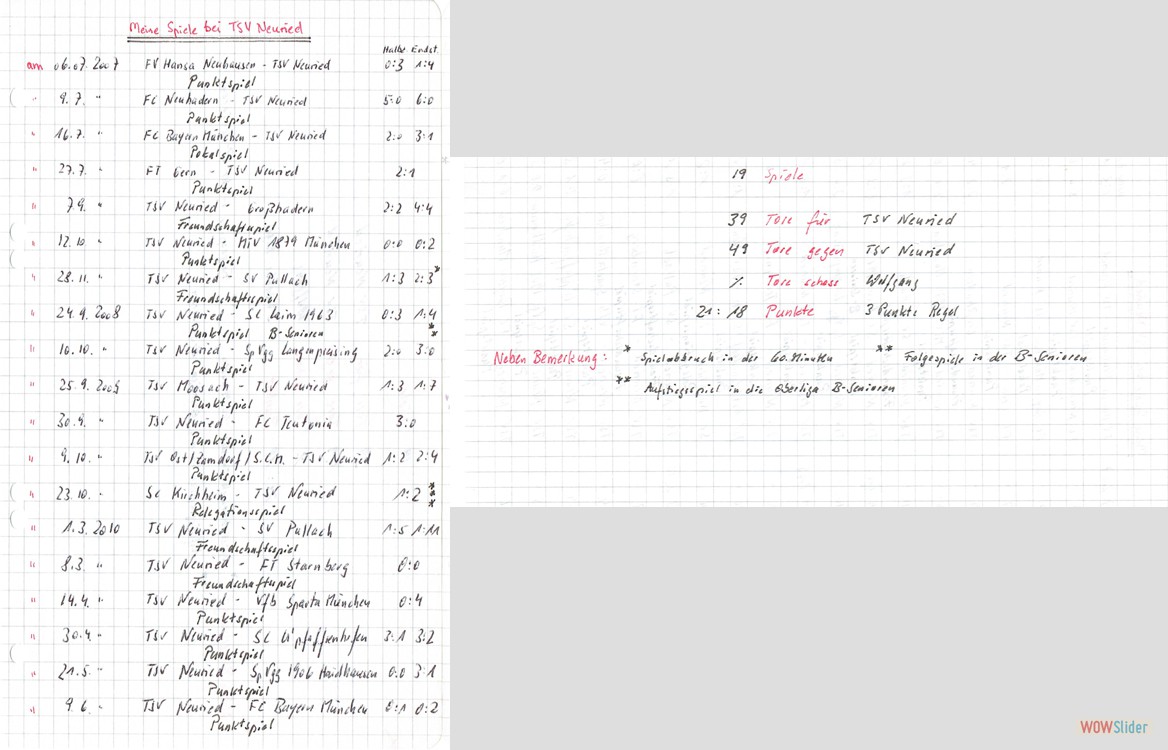 Meine Spiele bei TSV Neuried
Halbz. Endst.
am 06.07.2007 FV Hansa Neuhausen - TSV Neuried 0:3 1:4
Punktspiel
" 9.7. " FC Neuhadern - TSV Neuried 5:0 6:0
Punktspiel
" 16.7. " FC Bayern München - TSV Neuried 2:0 3:1
Pokalspiel
" 27.7. " FT Gern - TSV Neuried 2:1
Punktspiel
" 7.9. " TSV Neuried - Großhadern 2:2 4:4
Freundschaftspiel
" 12.10 " TSV Neuried - MTV 1879 München 0:0 0:2
Punktspiel
" 28.11. " TSV Neuried - SV Pullach 1:3 2:3*
Freundschaftsspiel
" 24.9.2008 TSV Neuried - SC Laim 1963 0:3 1:4
Punktspiel B-Senioren **
" 16.10. " TSV Neuried - SpVgg Langenpreising 2:0 3:0
Punktspiel
" 25.9.2009 TSV Moosach - TSV Neuried 1:3 1:7
Punktspiel
" 30.9. " TSV Neuried - FC Teutonia 3:0
Punktspiel
" 9.10. " TSV Ost/Zamdorf/S.C.M. - TSV Neuried 1:2 2:4
Punktspiel
" 23.10. " SC Kirchheim - TSV Neuried 1:2 ***
Relegationsspiel
" 1.3.2010 TSV Neuried - SV Pullach 1:5 1:11
Freundschaftsspiel
" 8.3. " TSV Neuried - FT Starnberg 0:0
Freundschaftspiel
" 14.4. " TSV Neuried - VfB Sparta München 0:4
Punktspiel
" 30.4. " TSV Neuried - SC U'pfaffenhofen 3:1 3:2
Punktspiel
" 21.5. " TSV Neuried - SpVgg 1906 Haidhausen 0:0 3:1
Punktspiel
" 9.6. " TSV Neuried - FC Bayern München 0:1 0:2
Punktspiel
19 Spiele
39 Tore für TSV Neuried
49 Tore gegen TSV Neuried
% Tore schoss Wolfgang
21:18 Punkte 3 Punkte Regel
Neben Bemerkung: * Spielabbruch in der 60. Minuten ** Folgespiele in der B-Senioren
** Aufstiegsspiel in die Oberliga B-Senioren
WOWSlider